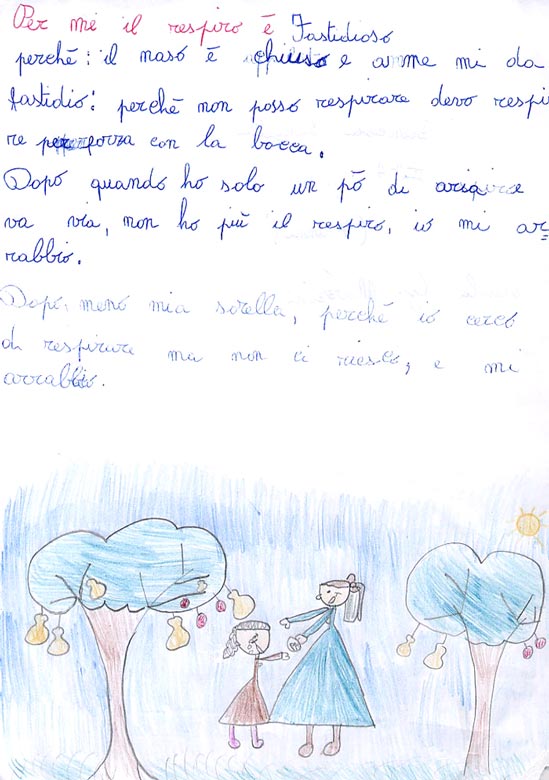 Per me il respiro è Fastidioso
perché: il naso è chiuso e amme mi da
fastidio: perché non posso respirare devo respi
re per forza con la bocca.
Dopo quando ho solo un pò di aria
va via, non ho più il respiro, io mi ar=
rabbio.
Dopo, meno mia sorella, perché io cerco
di respirare ma non ci riesco, e mi
arrabbio.